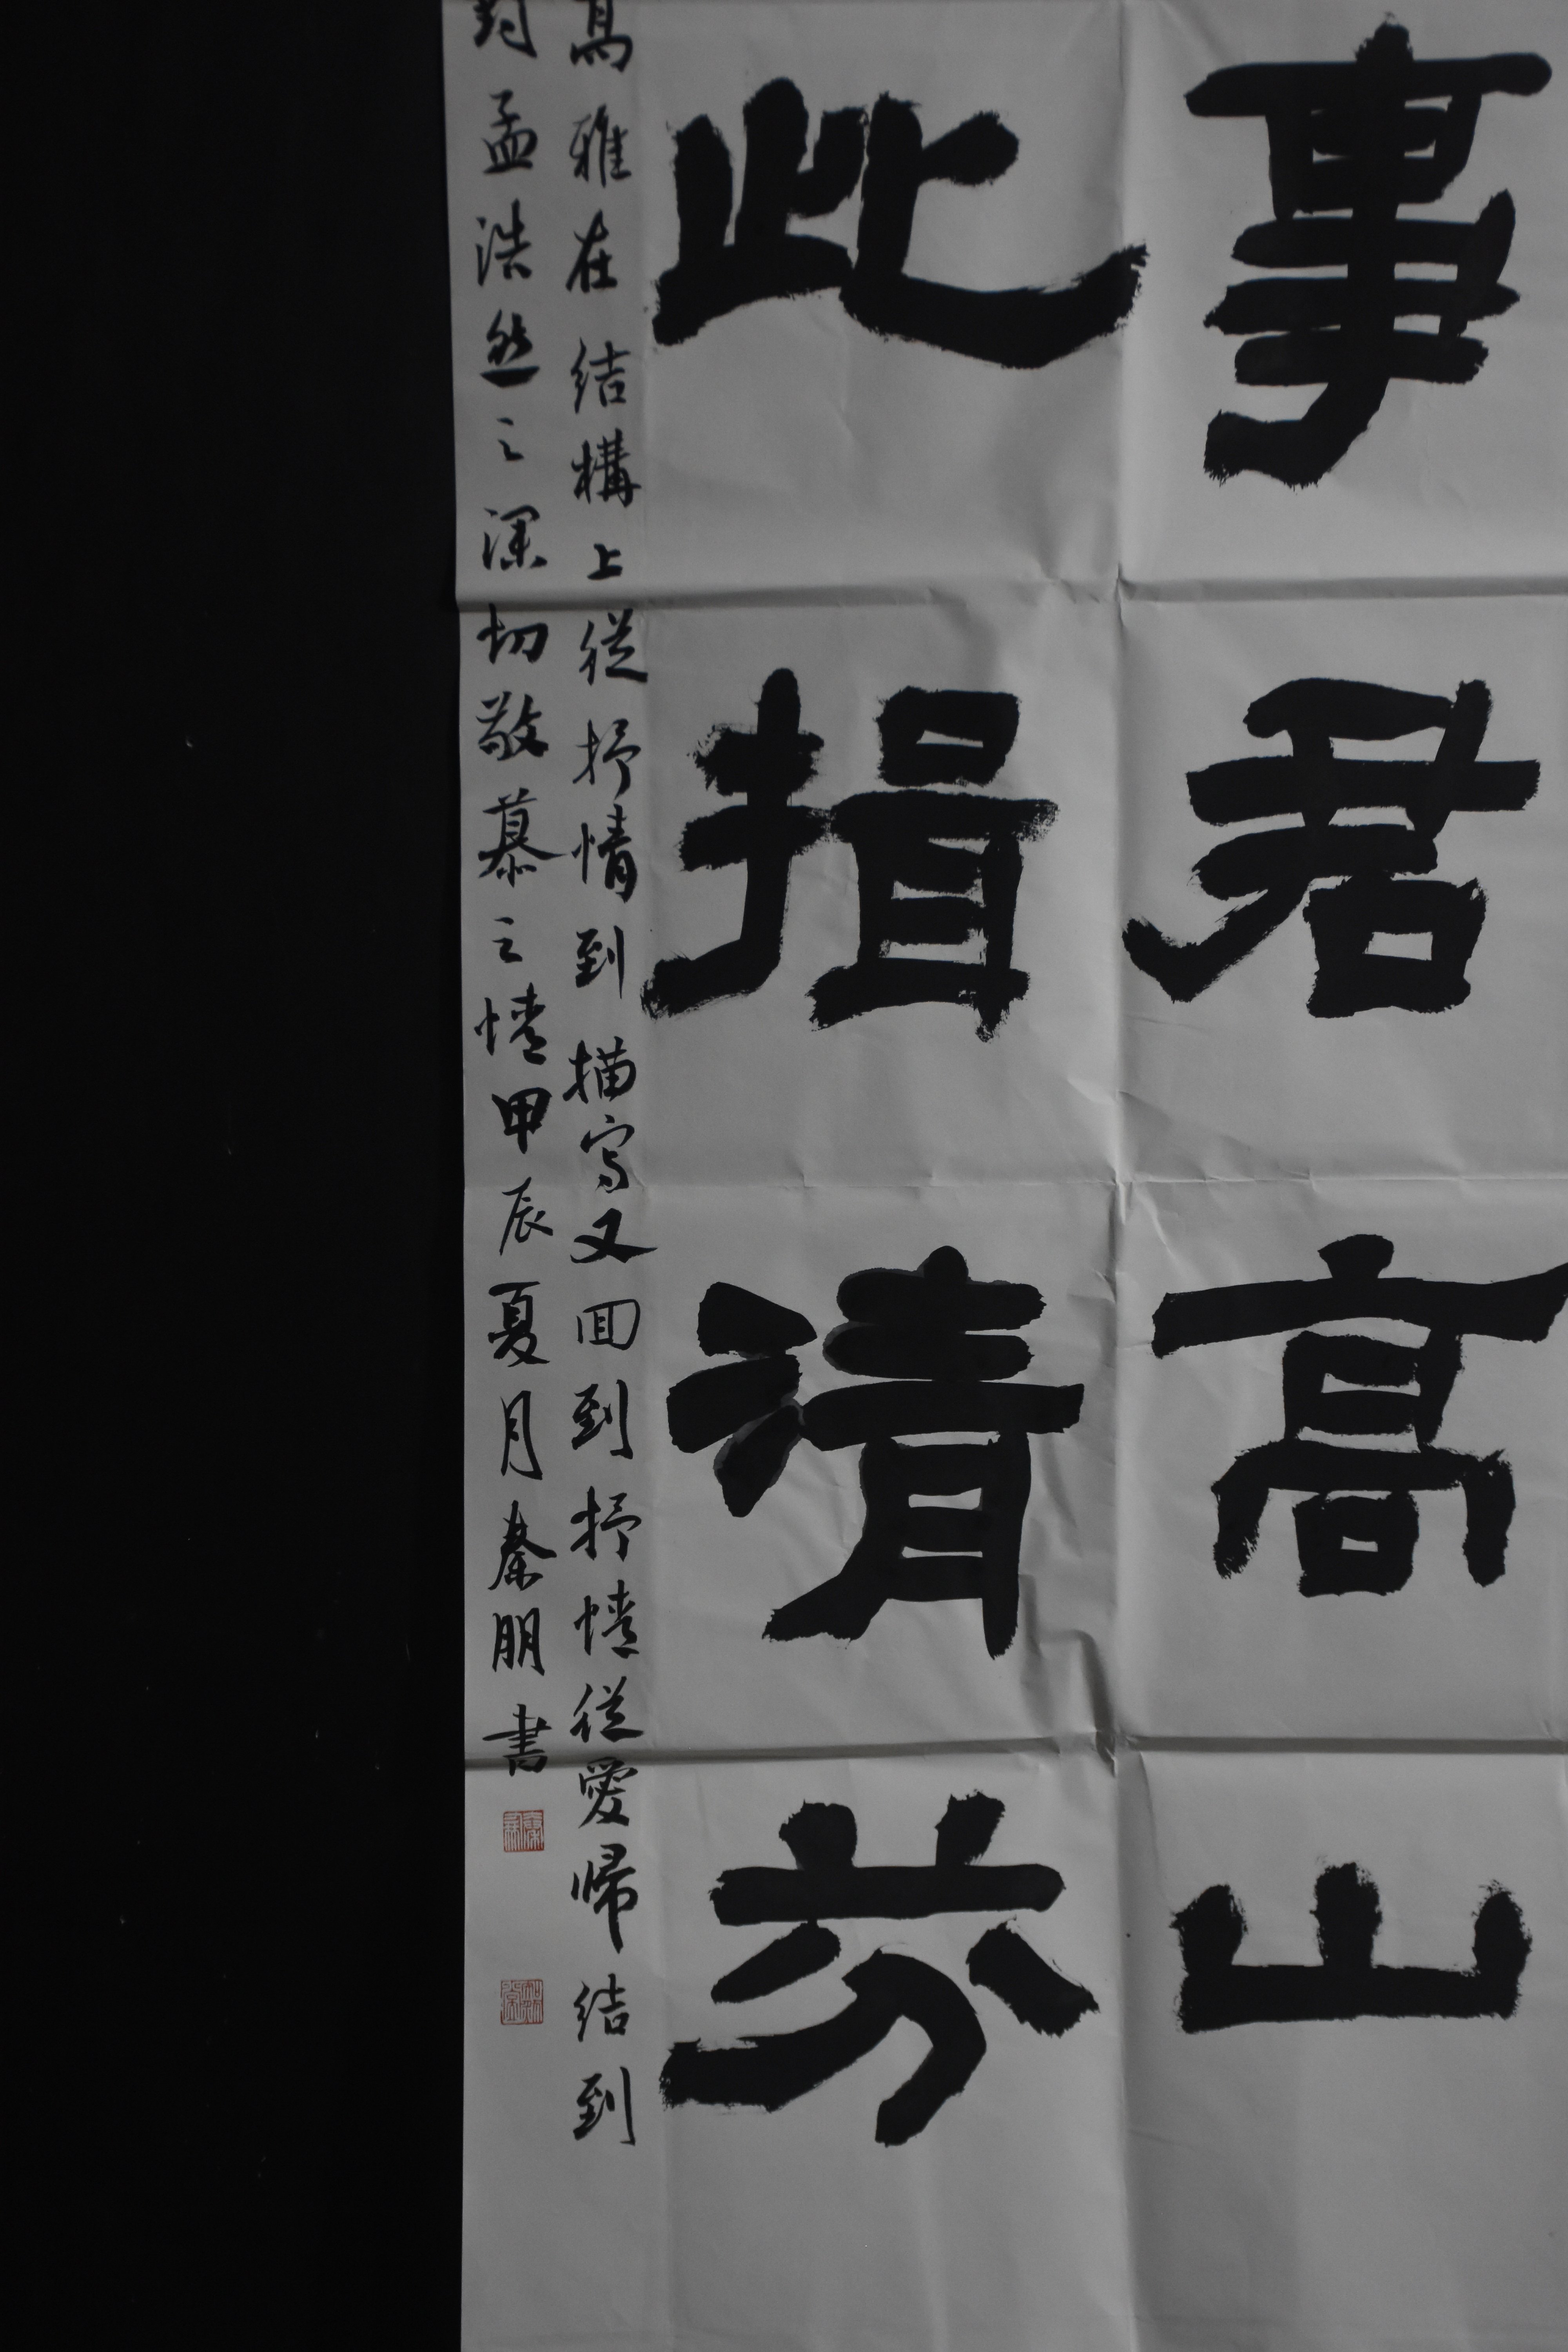 事君高山
此揖清芬
高雅在结構上從抒情到描寫又回到抒情從愛歸结到
對孟浩然之深切敬慕之情甲辰夏月秦朋書